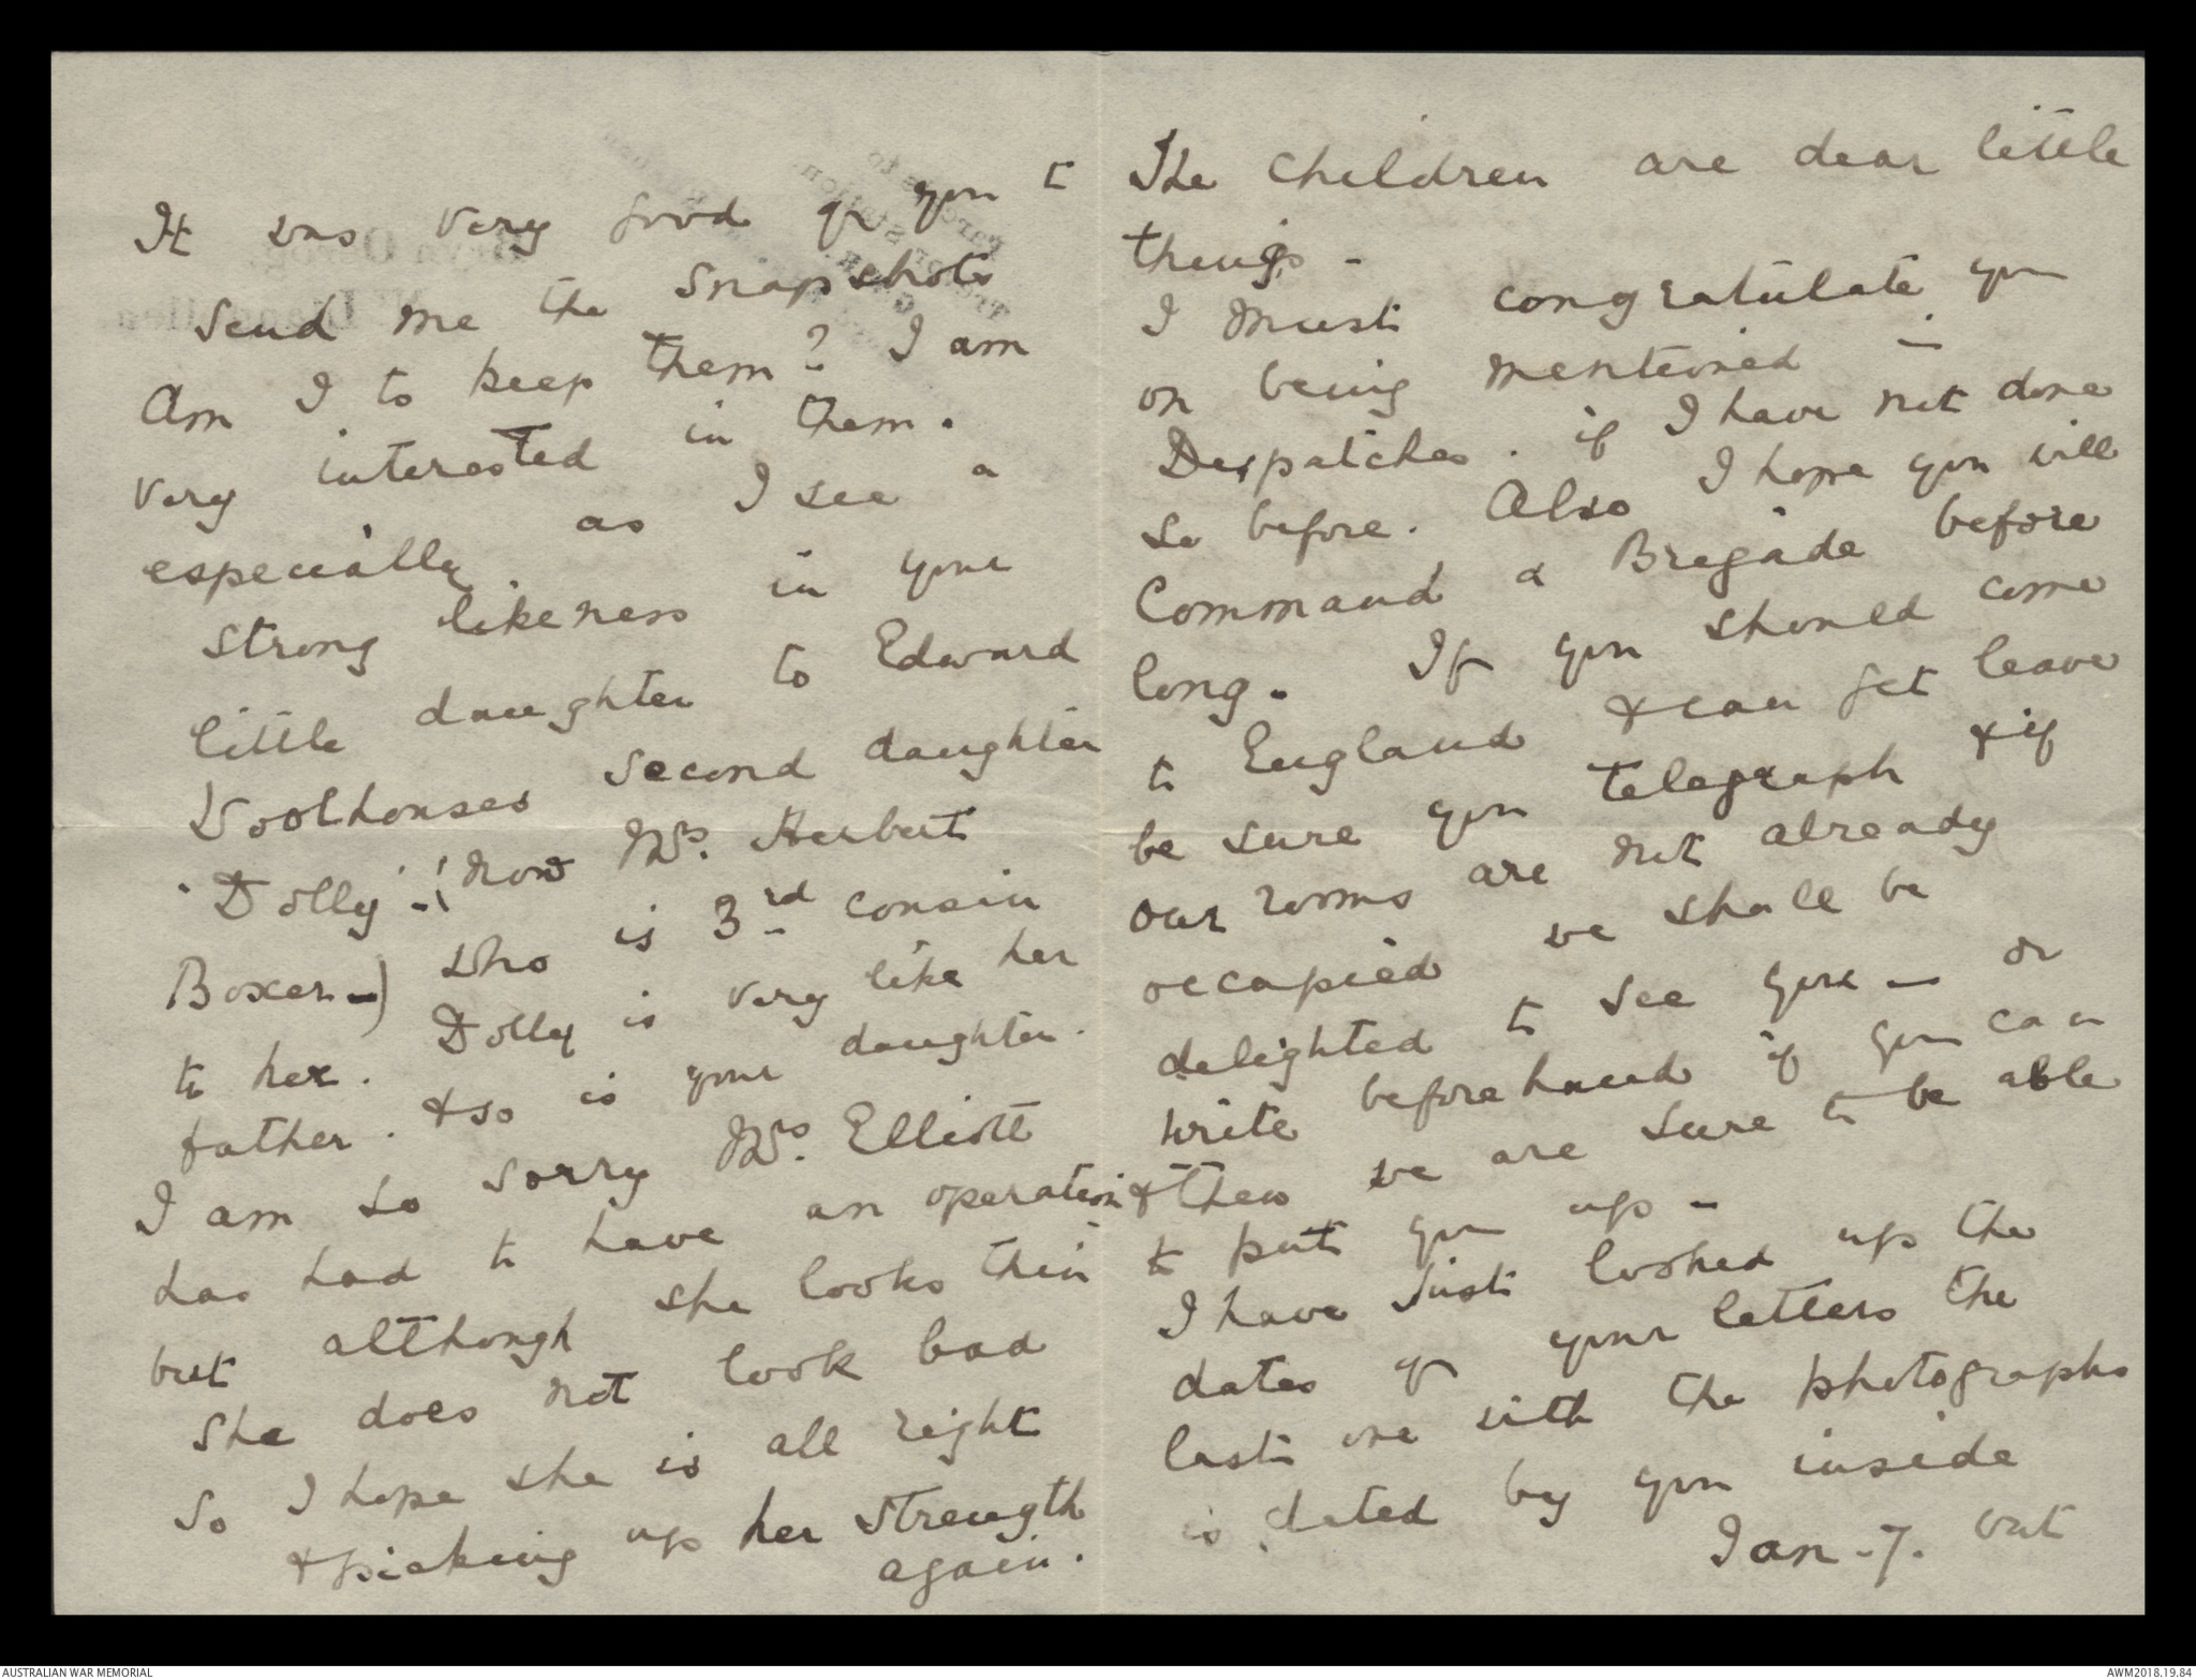 It was very good of you to
send me the snapshots
Am I to keep them? I am
very interested in them.
especially as I see a
strong likeness in your
little daughter to Edward
Woolhouses second daughter
'Dolly' - (now Mrs. Herbert
Boxer -) who is 3rd cousin
to her. Dolly is very like her
father. & so is your daughter.
I am so sorry Mrs. Elliott
has had to have an operation
but although she looks thin
she does not look bad
so I hope she is all right
& picking up her strength
again.
The children are dear little
things -
I must congratulate you
on being mentioned in
Despatches. if I have not done
so before. Also I hope you will
Command a Brigade before
long. If you should come
to England & can get leave
be sure you telegraph & if
our rooms are not already
occupied we shall be
delighted to see you - or
write beforehand if you can
& then we are sure to be able
to put you up -
I have just looked up the
dates of your letters the
last one with the photographs
is dated by you inside
Jan. 7. but
AUSTRALIAN WAR MEMORIAL
AWM2018.19.84